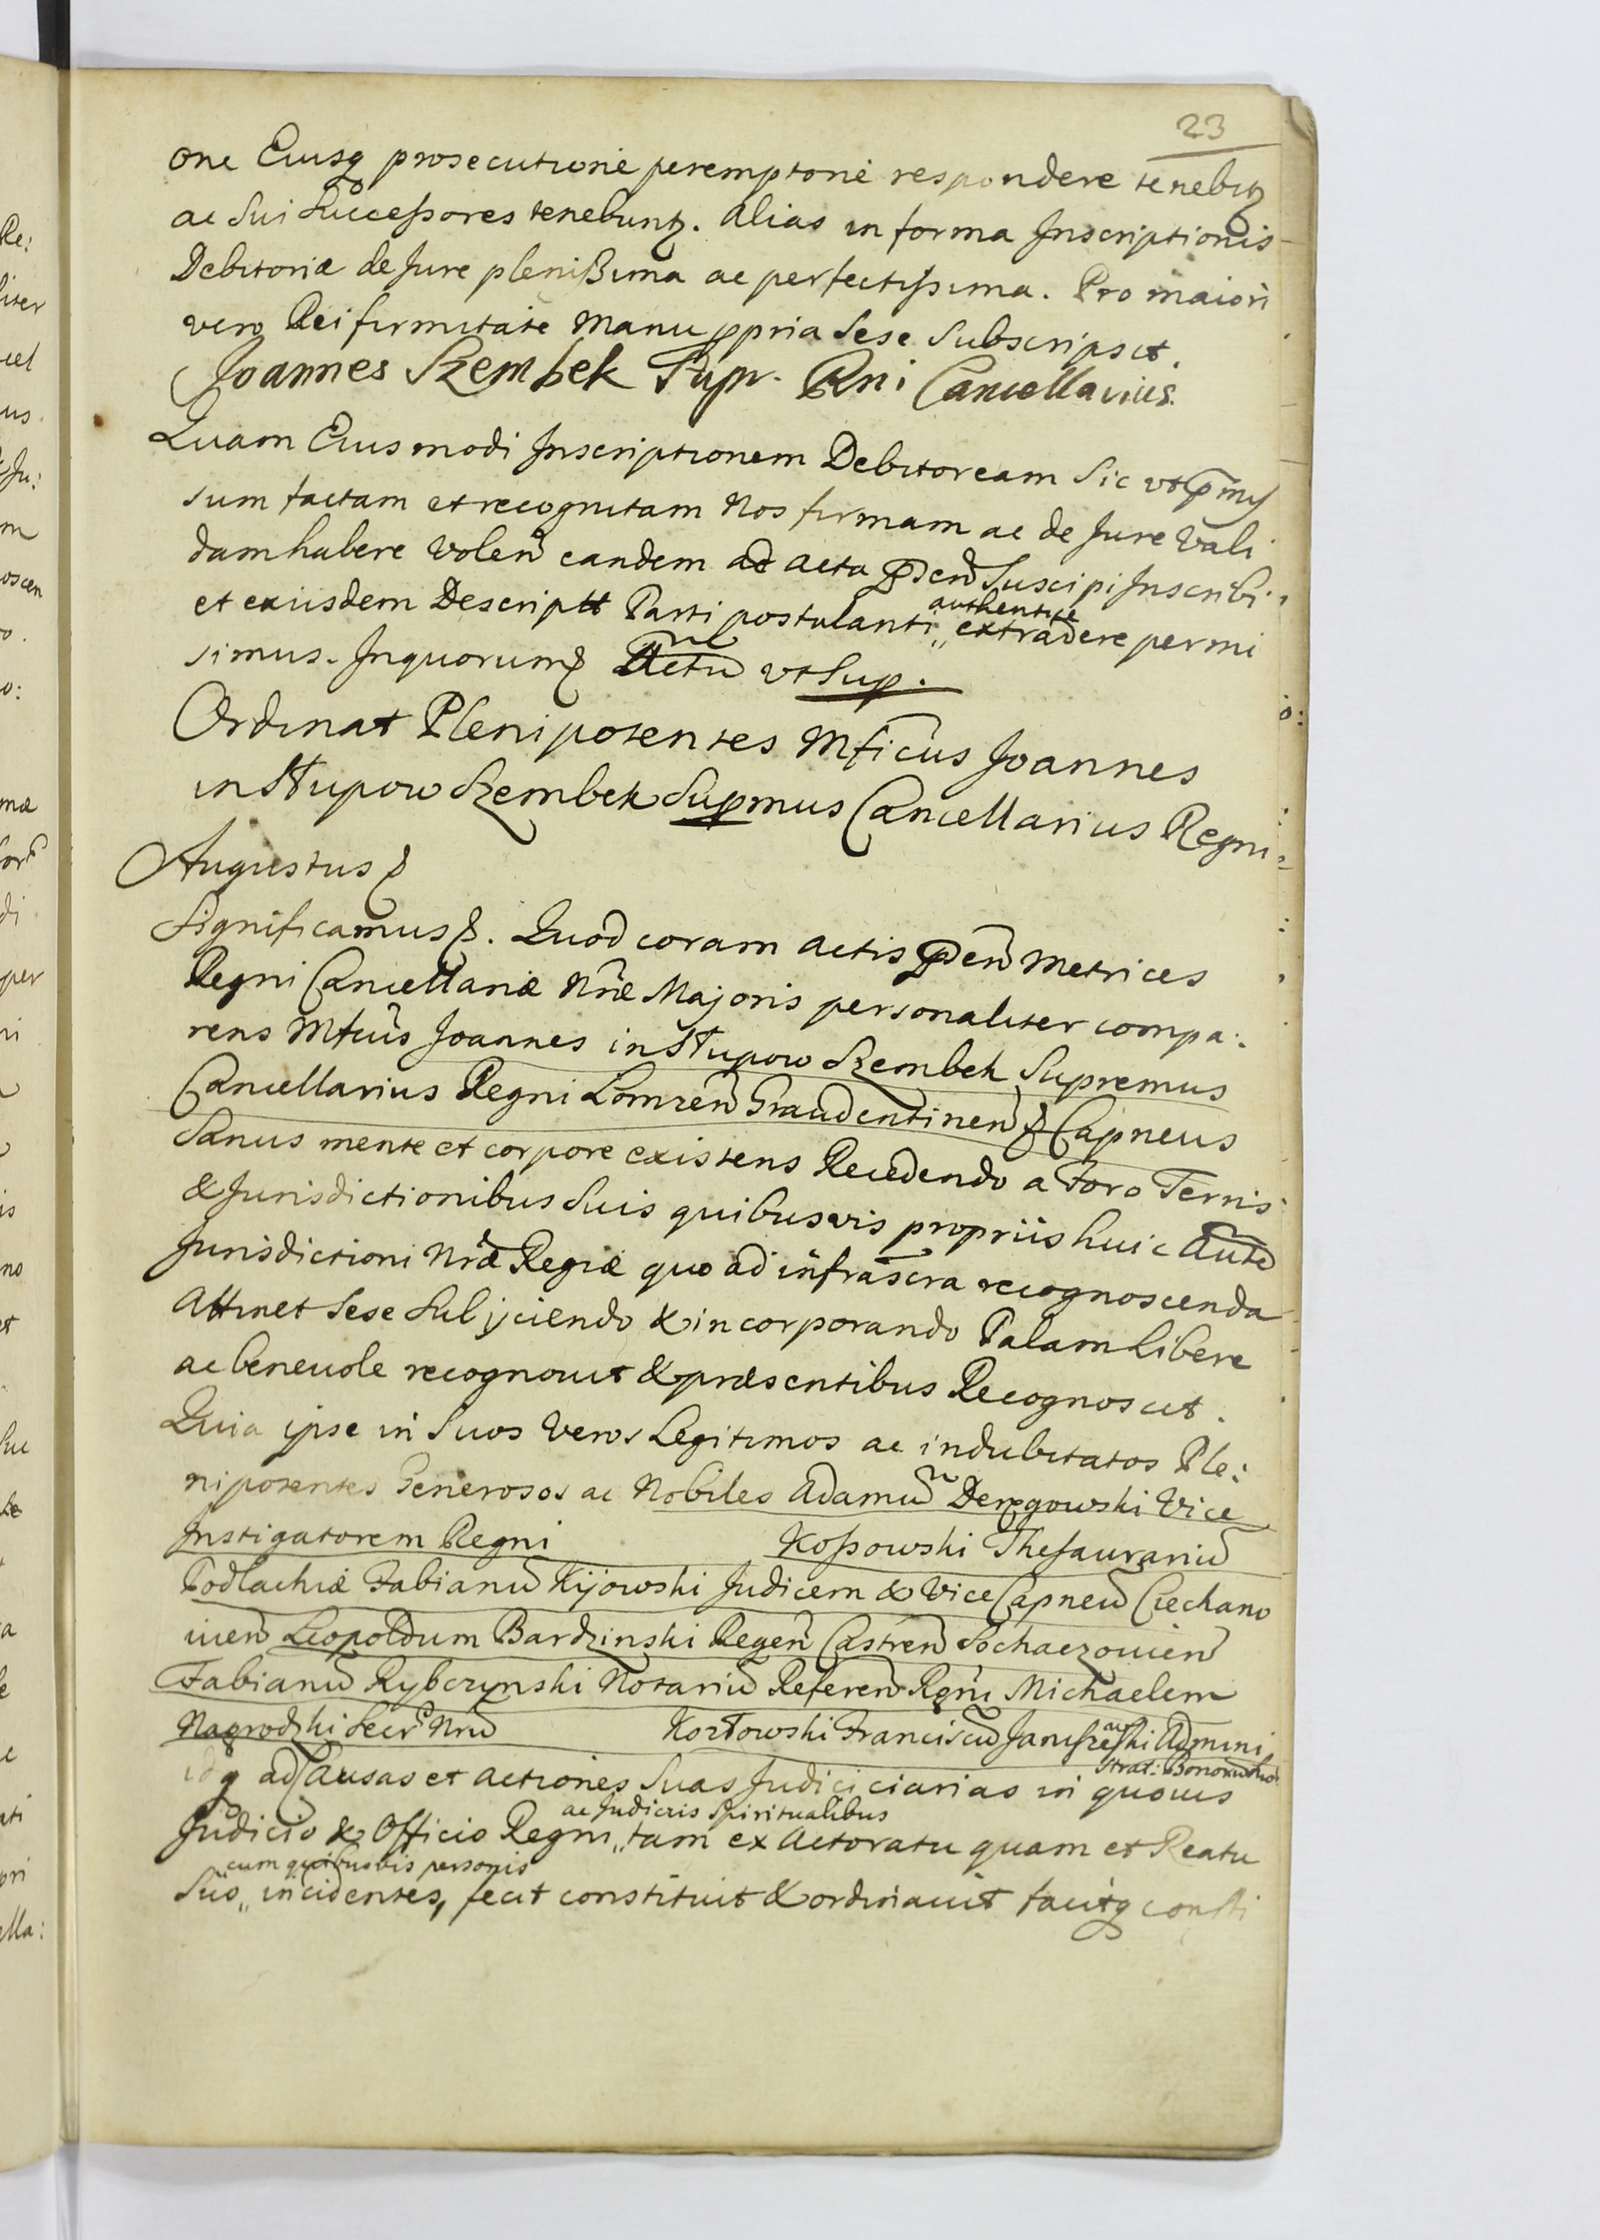 23
one Eiusq prosecutione peremptorie respondere tenebitz
ac Sui Successores tenebuntz. Alias in forma Inscriptionis
Debitoriæ de Jure plenissima ac perfectissima. Pro maiori
vero Rei firmitate Manu ppria Sese Subscripsit.
Joannes Szembek Supr. Rni Cancellarius.
Quam Eiusmodi Inscriptionem Debitoream Sic vt pmis
sum factam et recognitam Nos firmam ac de Jure Vali
dam habere Volen eandem ad Acta pden Suscipi Inscribi
et exiisdem Descriptt Parti postulanti authentice extradere permi
simus. Inquorum Dat vt Sup.
Ordinat Plenipotentes Mficus Joannes
in Słupow Szembek Supmus Cancellarius Regni
Augustus
Significamus. Quod coram actis pden Metrices
Regni Cancellariæ Nræ Majoris personaliter compa:
rens Mficus Joannes in Słupow Szembek Supremus
Cancellarius Regni Lomzen Graudentinen & Capneus
Sanus mente et corpore existens Recedendo a Foro Terris
& Jurisdictionibus Suis quibusvis propriis huic Aute
Jurisdictioni Nræ Regiæ quo ad infrascra recognoscenda
Attinet Sese Subijciendo & incorporando Palam Libere
ac beneuole recognouit & præsentibus Recognoscit.
Quia ipse in Suos Veros Legitimos ac indubitatos Ple:
nipotentes Generosos ac Nobiles Adamu Deregowski Vice
Instigatorem Regni Kossowski Thesaurariu
Podlachiæ Fabianu Kijowski Judicem & Vice Capneu Ciechano
uien Leopoldum Bardzinski Regen Castren Sochaczouien
Fabianu Rybczynski Notariu Referen Regni Michaelem
Nagrodzki Secr Nru Kozłowski Franciscu Janiszewski Admini
strat: Bonoru
idq ad Causas et actiones Suas Judiciciarias in quouis
Judicio & Officio Regni ac Judiciis Spiritualibus tam ex Actoratu quam et Reatu
Suo cum quibusvis personis incidentes, fecit constituit & ordinauit facitq consti